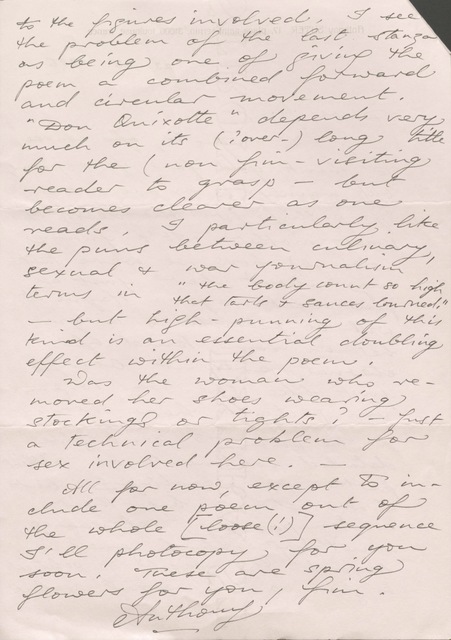 to the figures involved. I see
the problem of the last stanza
as being one of giving the
poem a combined forward
and circular movement.
"Don Quixotte" depends very
much on its (?over-) long title
for the (non film-visiting
reader to grasp — but
becomes clearer as one
reads. I particularly like
the puns between culinary,
sexual & war journalism,
terms in "the body count so high
that tarts & sauces"
— but high-punning of this
kind is an essential doubling
effect within the poem.
Was the woman who re-
moved her shoes wearing
stockings or tights? — Just
a technical problem for
sex involved here. —
All for now, except to in-
clude one poem out of
the whole [loose(!)] sequence
I'll photocopy for you
soon. These are spring
flowers for you, Jim.
Anthony